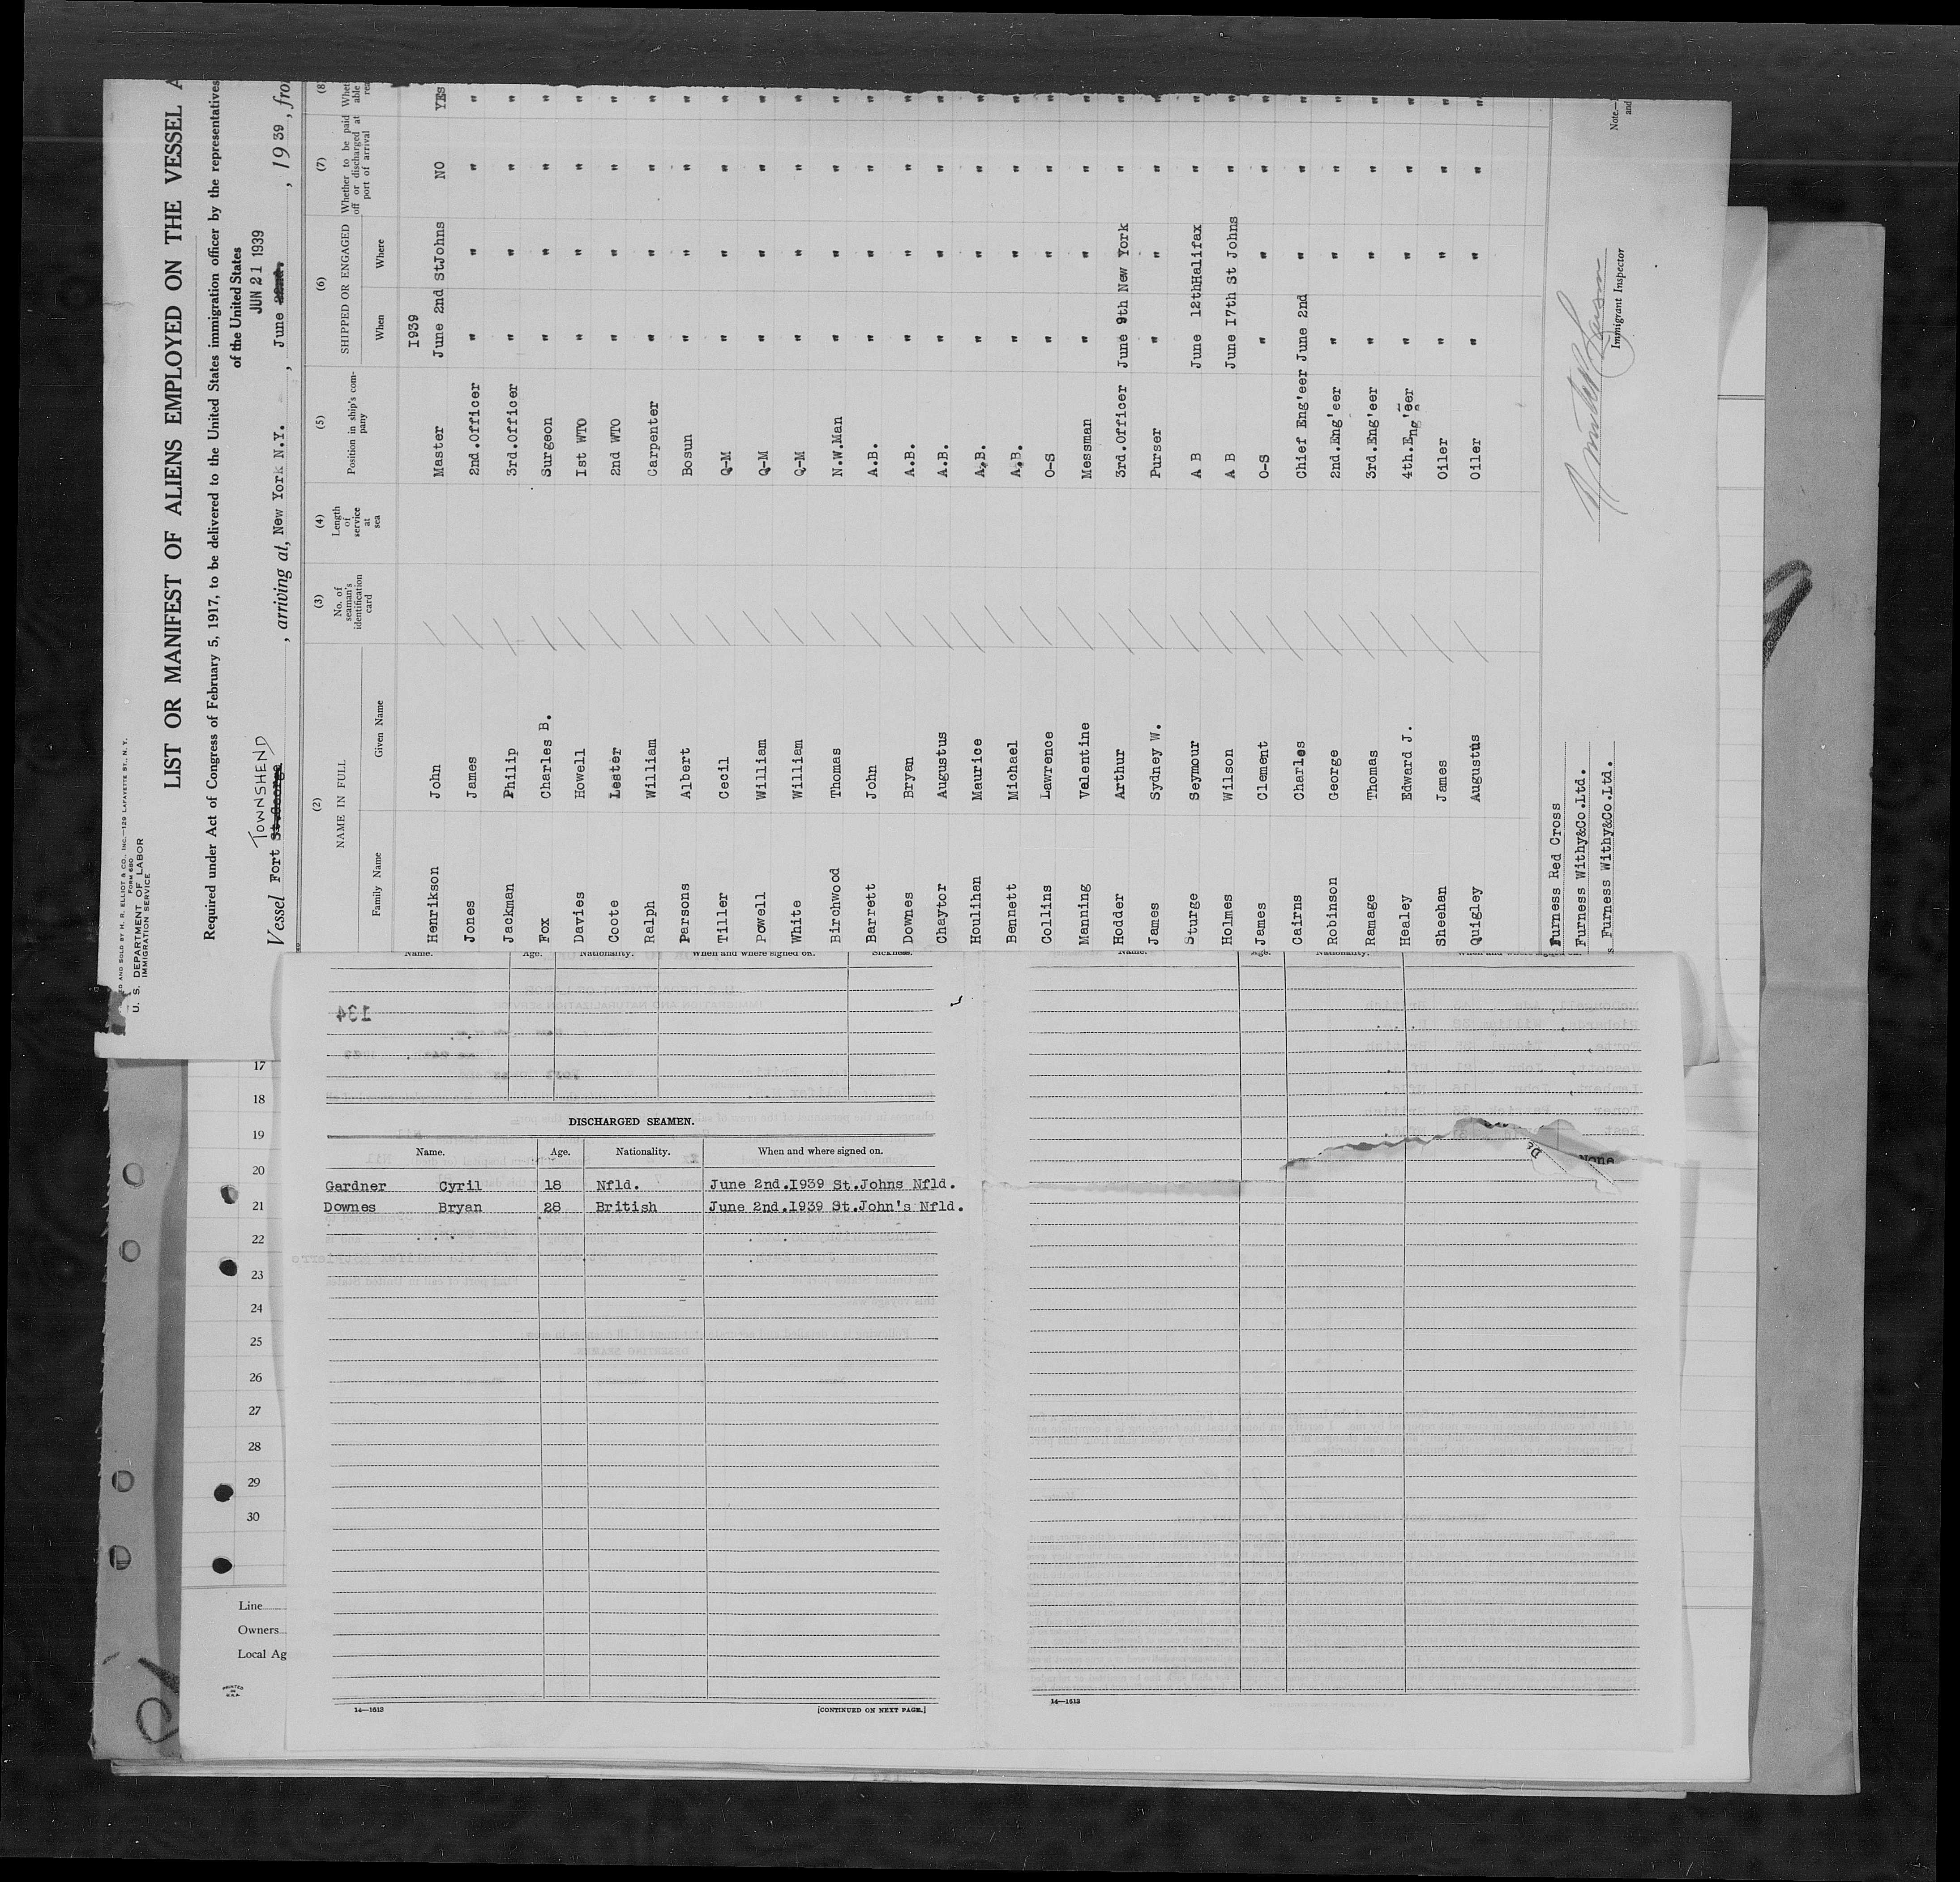 AND SOLD BY H. R. ELLIOT & CO., INC.—129 LAFAYETTE ST., N. Y.
FORM 680
U. S. DEPARTMENT OF LABOR
IMMIGRATION SERVICE
LIST OR MANIFEST OF ALIENS EMPLOYED ON THE VESSEL A
Required under Act of Congress of February 5, 1917, to be delivered to the United States immigration officer by the representatives
of the United States
JUN 21 1939
TOWNSHEND
Vessel Fort St.George , arriving at, New York N.Y. , June 22nd. , 1939, fro
(2) (3) (4) (5) (6) (7) (8)
NAME IN FULL No. of seaman's identification card Length of service at sea Position in ship's company SHIPPED OR ENGAGED Whether to be paid off or discharged at port of arrival Whet able rea
Family Name Given Name When Where
1939
Henrikson John Master June 2nd StJohns NO YEs
Jones James 2nd.Officer " " " "
Jackman Philip 3rd.Officer " " " "
Fox Charles B. Surgeon " " " "
Davies Howell Ist WTO " " " "
Coote Lester 2nd WTO " " " "
Ralph William Carpenter " " " "
Parsons Albert Bosun " " " "
Tiller Cecil Q-M " " " "
Powell William Q-M " " " "
White William Q-M " " " "
Birchwood Thomas N.W.Man " " " "
Barrett John A.B. " " " "
Downes Bryan A.B. " " " "
Chaytor Augustus A.B. " " " "
Houlihan Maurice A.B. " " " "
Bennett Michael A.B. " " " "
Collins Lawrence O-S " " " "
Manning Valentine Messman " " " "
Hodder Arthur 3rd.Officer June 9th New York " "
James Sydney W. Purser " " " "
Sturge Seymour A B June 12thHalifax " "
Holmes Wilson A B June I7th St Johns " "
James Clement O-S " " " "
Cairns Charles Chief Eng'eer June 2nd " " "
Robinson George 2nd.Eng'eer " " " "
Ramage Thomas 3rd.Eng'eer " " " "
Healey Edward J. 4th.Eng'eer " " " "
Sheehan James Oiler " " " "
Quigley Augustus Oiler " " " "
Furness Red Cross
Furness Withy&Co.Ltd.
s Furness Withy&Co.Ltd.
Immigrant Inspector
Note.—
and
Name. Age. Nationality. When and where signed on. Sickness.
134
DISCHARGED SEAMEN.
Name. Age. Nationality. When and where signed on.
Gardner Cyril 18 Nfld. June 2nd.I939 St.Johns Nfld.
Downes Bryan 28 British June 2nd.I939 St.John's Nfld.
14—1613 [CONTINUED ON NEXT PAGE.]
Name. Age. Nationality. When and where signed on.
De
None
14—1613
17
18
19
20
21
22
23
24
25
26
27
28
29
30
Line
Owners
Local Ag
PRINTED IN U.S.A.